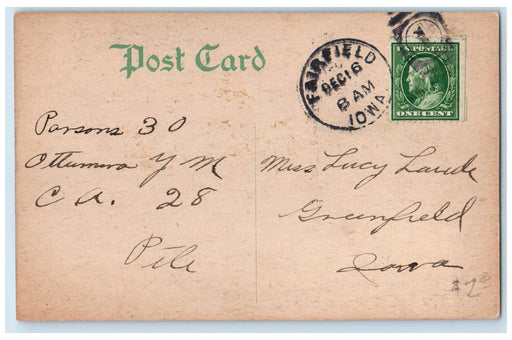 Post Card
FAIRFIELD
DEC 16
8 AM
IOWA
U.S. POSTAGE
ONE CENT
Parsons 30
Ottumwa Y M
C A. 28
Pete
Miss Lucy
Greenfield
Iowa